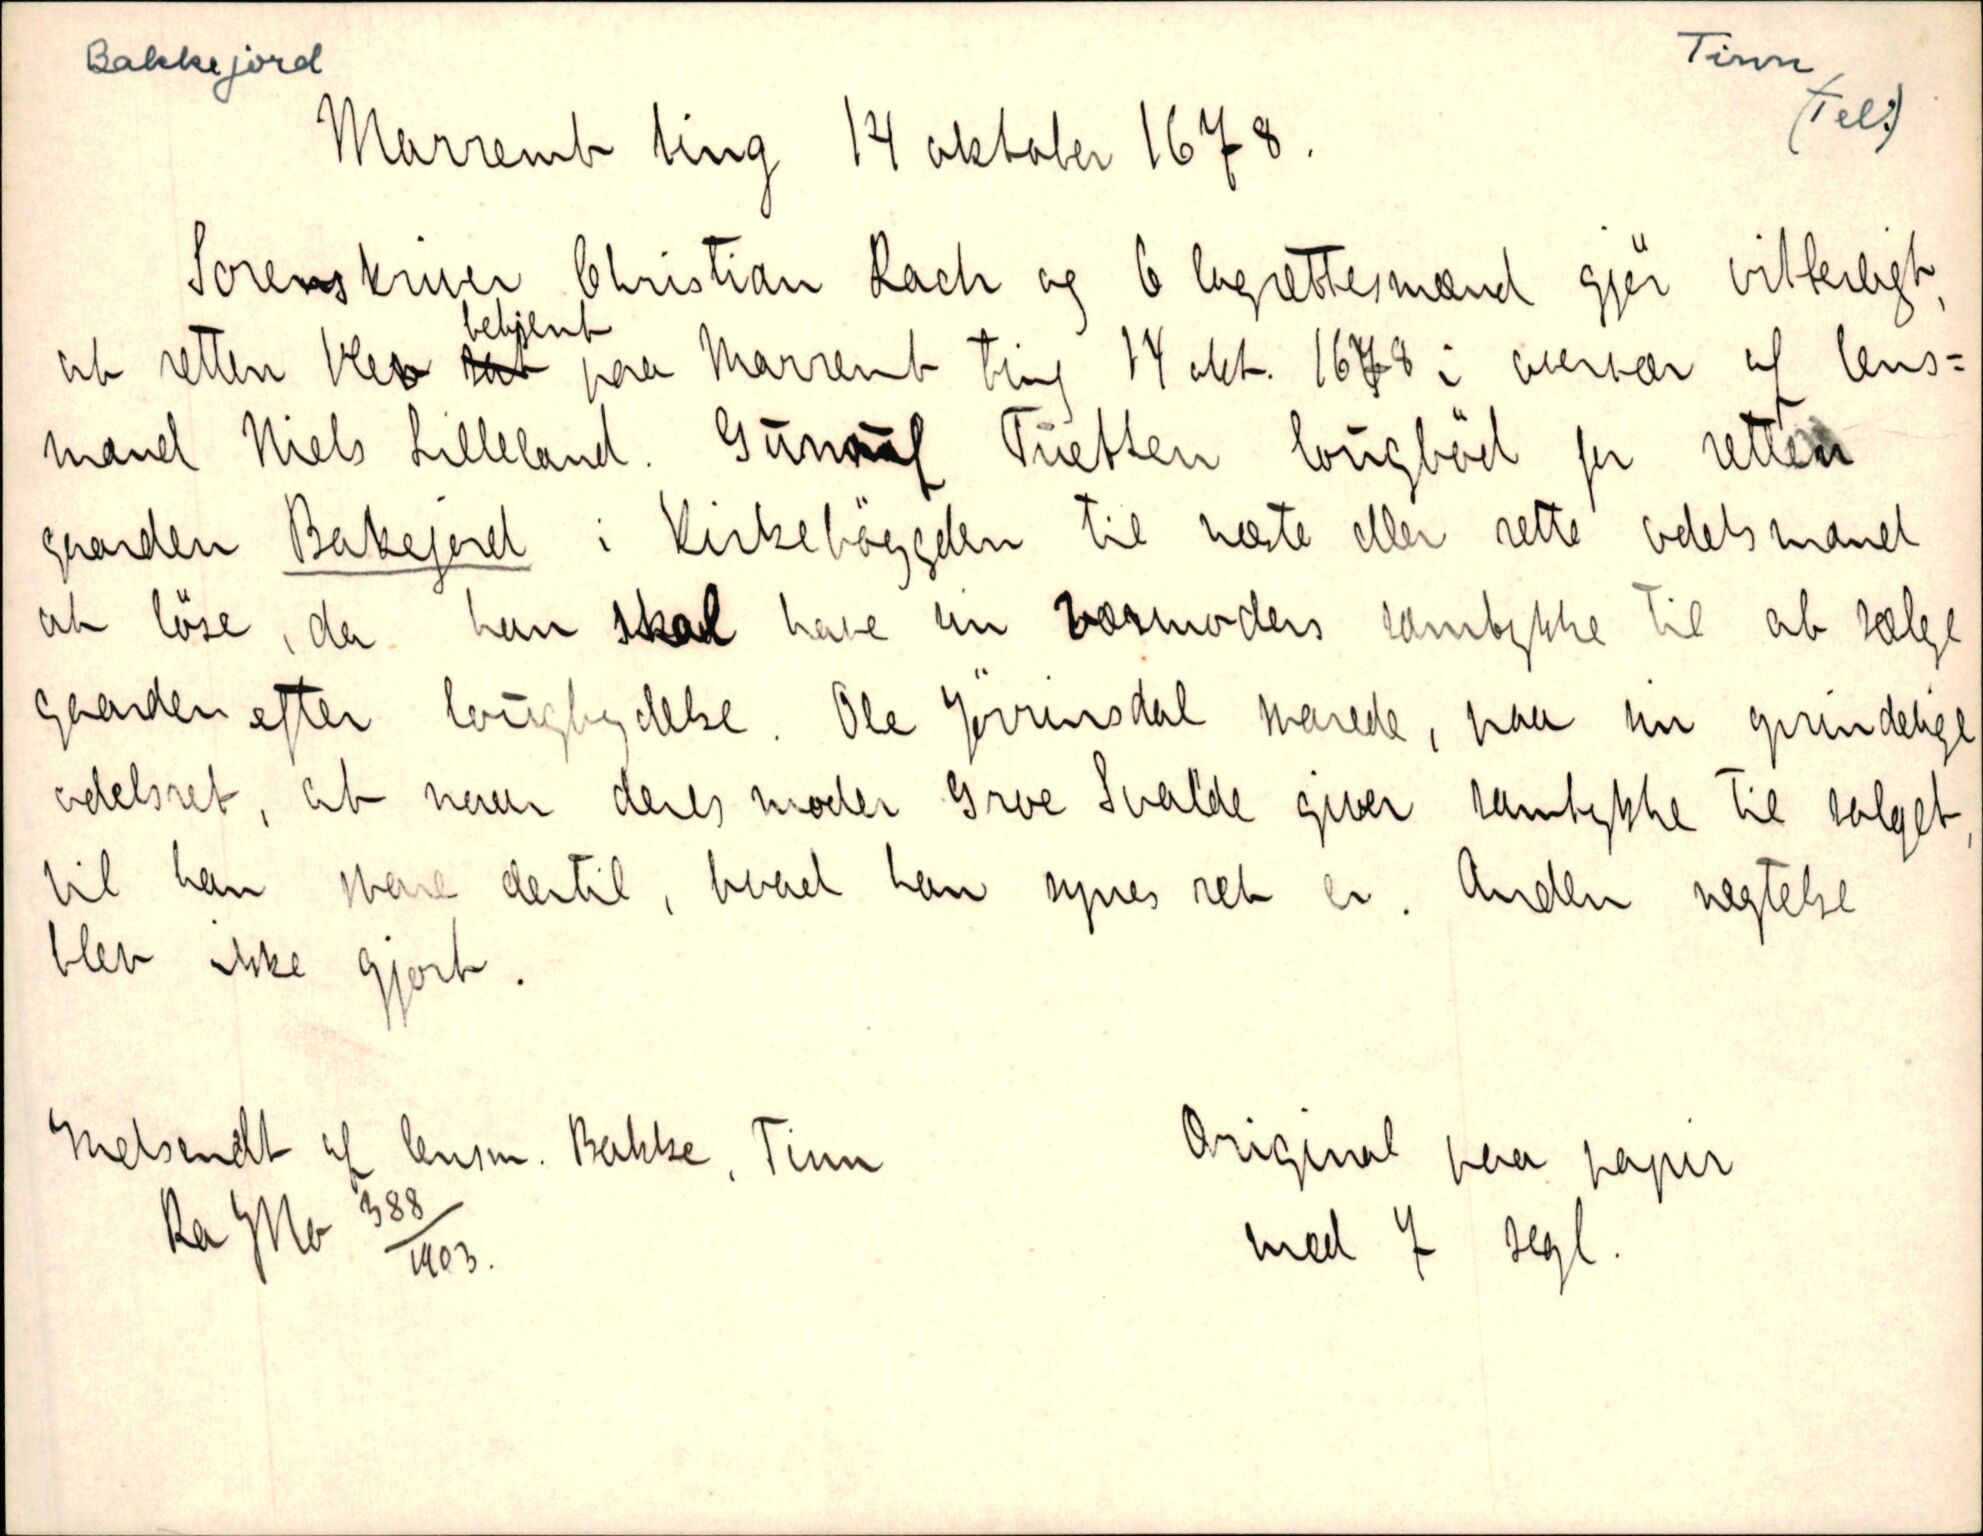 Bakkejord
Tinn
(Tel.)
Marremb ting 14 oktober 1678.
Sorenskriver Christian Rach og 6 lagrettesmænd gjör vitterligt,
at retten blev betjent paa Marremb ting 14 okt. 1678 i overvær af lens=
mand Niels Lilleland. Gunnūlf Tuetten loūgböd for retten
gaarden Bakejord i Kirkeböygden til næste eller rette odelsmand
at löse, da han skal have sin værmoders samtykke til at sælge
gaarden efter loūgbydelse. Ole Jörrinsdal svarede, paa sin grūndelige
odelsret, at naar deres moder Groe Svalde giver samtykke til salget,
vil han svare dertil, hvad han synes ret er. Anden negtelse
blev ikke gjort.
Indsendt af lensm. Bakke, Tinn
Ra JNo 388/1903.
Original paa papir
med 7 segl.